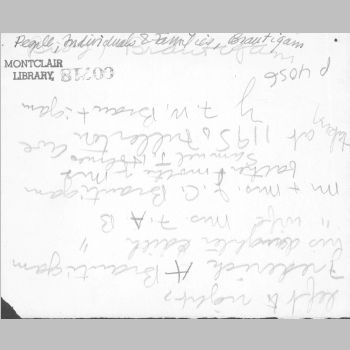 People, Individuals & Families, Brautigam
MONTCLAIR
LIBRARY,
P 4056
left to right
Frederick A Brautigam
his daughter Edith
" wife Mrs F. A B
Mr + Mrs. J. C. Brautigam
+ Mrs
Samuel J Holmes
taken at 119 S Fullerton Ave
by F. W. Brautigam